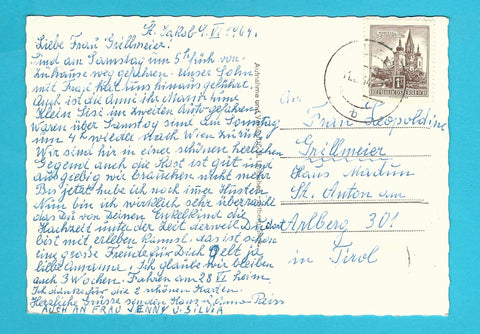 St. Jakob 9. VI 1964.
Liebe Frau Grillmeier!
Sind am Samstag um 5h früh von
zuhause weg gefahren. Unser Sohn
mit Frau hat uns hinausgeführt.
Auch ist die Anni ihr Mario und
Klein Sisi im zweiten Auto gefahren
waren über Samstag send. Am Sonntag
um 4h wieder nach Wien zurück.
Wir sind hir in einer schönen herlichen
Gegend auch die Kost ist gut und
ausgiebig wir brauchen nicht mehr
Bis jetzt habe ich noch imer Husten
Nun bin ich wirklich sehr überrascht
das Du von Deinen Enkelkind die
Hochzeit unter der Zeit derweil Du dort
bist mit erleben kannst, das ist schon
eine große Freude für Dich gelt ja
liebe Ich glaube wir bleiben
auch 3 Wochen. Fahren am 28 VI heim.
Ich danke für die 2 schönen Karten.
Herzliche Grüsse senden Hans u. Anna Reiss
AUCH AN FRAU JENNY U. SILVIA
REPUBLIK ÖSTERREICH
An
Frau Leopoldine
Grillmeier
Haus
St. Anton am
Arlberg 301
in Tirol